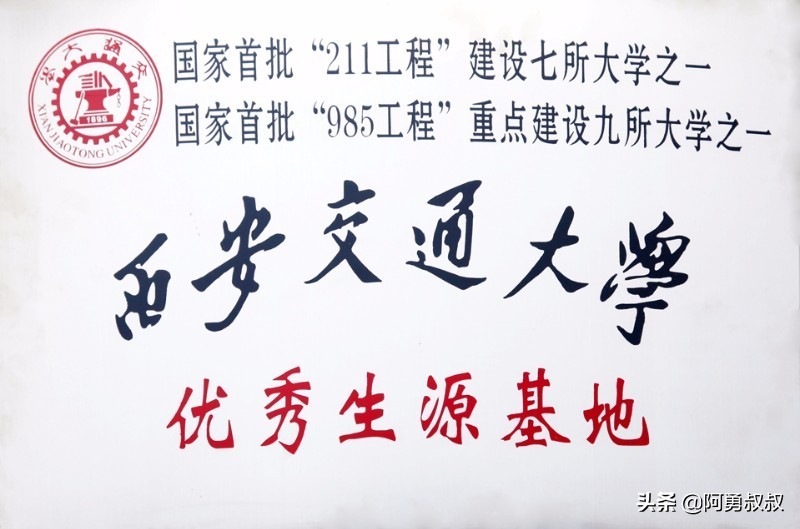 国家首批“211工程”建设七所大学之一
国家首批“985工程”重点建设九所大学之一
交通大学
XI'AN JIAOTONG UNIVERSITY
1896
西安交通大学
优秀生源基地
头条 @阿勇叔叔